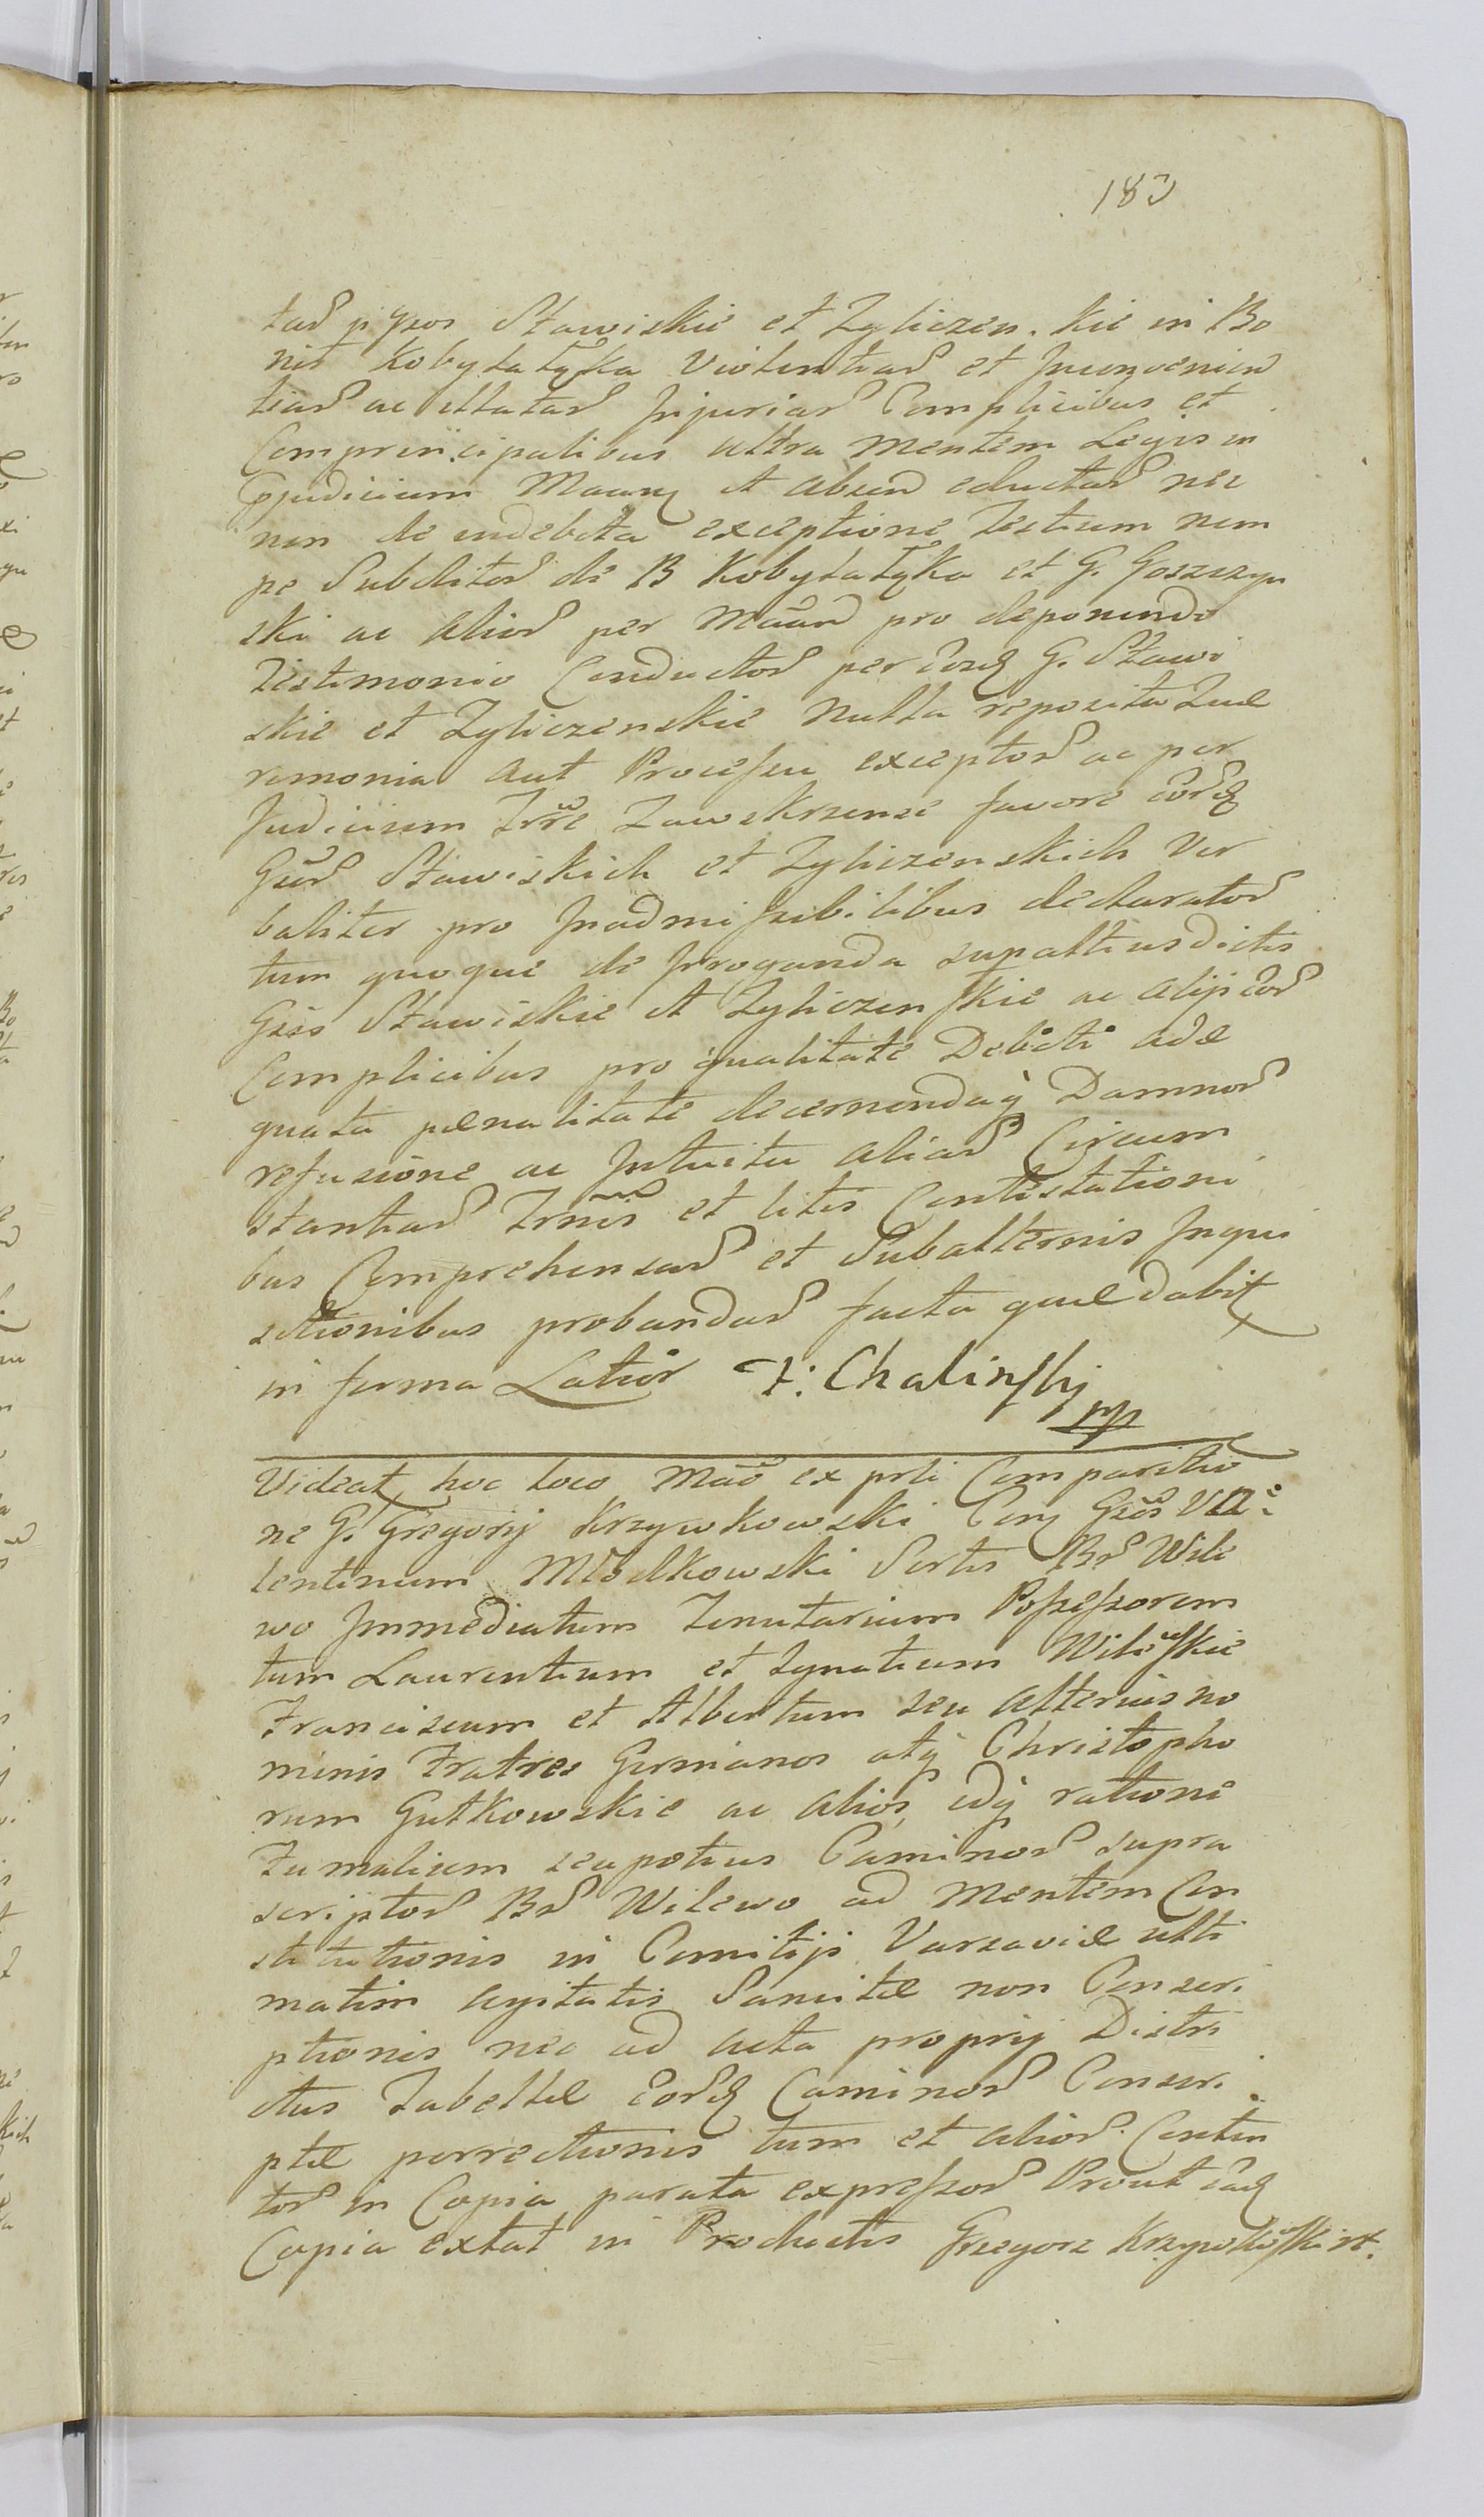 183
tar̃ p Gsos Stawiskie et Zyliczen. kie in Bo
nis Kobyłałąka violentiar̃ et Inconvenien
tiar̃ ac illatar̃ Injuriar̃ Complicibus et
Comprincipalibus ultra mentem Legis in
ppudicium et absend eductar̃ nec
non de indebita exceptione Testium nem
pe Subditor̃ de B Kobyłałąka et G. Goszczyn
ski ac alior̃ per pro deponendo
Testimonio Conductor̃ per G. Stawi
skie et Zyliczenskie nulla reposita Quæ
remonia aut Processu exceptor̃ ac per
Judicium Trrẽ Zawskrzense favore
Gsor̃ Stawiskich et Zyliczenskich ver
baliter pro Inadmissibilibus declarator̃
tum quoque de Irroganda supaltiusdictis
Gsis Stawiskie et Zyliczenskie ac alijs eor̃
Complicibus pro qualitate Delicti adæ
quata pœnalitate decernendaq Damnor̃
refusione ac Intuitu aliar̃ Circum
stantiar̃ Trmis et litis Contestationi
bus Comprehensar̃ et Subalternis Inqui
sitionibus probandar̃ facta quæ dabit
in forma Latior F: Chalinski
mp
Videat hoc loco ex prli Comparitio
ne G. Gregorij Krzywkowski Con Gsos Va
lentinum Młodkowski Sortis Br̃ Wile
wo Immediatum Tenutarium Possessorem
tum Laurentium et Ignatium Wilewskie
Franciscum et Albertum seu alterius no
minis Fratres Germanos atq Christopho
rum Gutkowskie ac alios idq ratione
Fumalium seupotius Caminor̃ supra
scriptor̃ Br̃ Wilewo ad mentem Con
stitutionis in Comitijs Varsaviæ ulti
matim agitatis Sancitæ non Conscri
ptionis nec ad acta proprij Distri
ctus Tabellæ Caminor̃ Conscri
ptæ porrectionis tum et alior̃ Conten
tor̃ in Copia parata expressor̃ Prout
Copia extat in Productis Grzegorz Krzywkowski